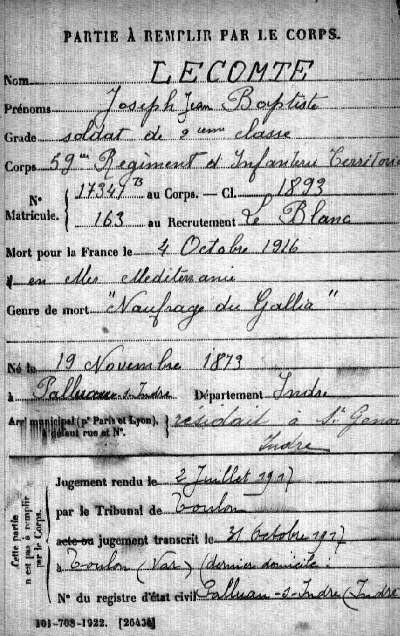 PARTIE À REMPLIR PAR LE CORPS.
Nom LECOMTE
Prénoms Joseph Jean Baptiste
Grade soldat de 2ieme classe
Corps 59me Régiment d'Infanterie Territoria
N° Matricule. 17347 B au Corps. — Cl. 1893
163 au Recrutement Le Blanc
Mort pour la France le 4 Octobre 1916
en Mer Mediterranée
Genre de mort "Naufrage du Gallia"
Né le 19 Novembre 1873
à Palluau-s-Indre Département Indre
Arrt municipal (pr Paris et Lyon), à défaut rue et N°. résidait à St Genou
Indre
Cette partie n'est pas à remplir par le Corps.
Jugement rendu le 2 Juillet 1917
par le Tribunal de Toulon
acte ou jugement transcrit le 31 Octobre 1917
à Toulon (Var) (dernier domicile :
N° du registre d'état civil Palluau-s-Indre (Indre)
101-708-1922. [26434]